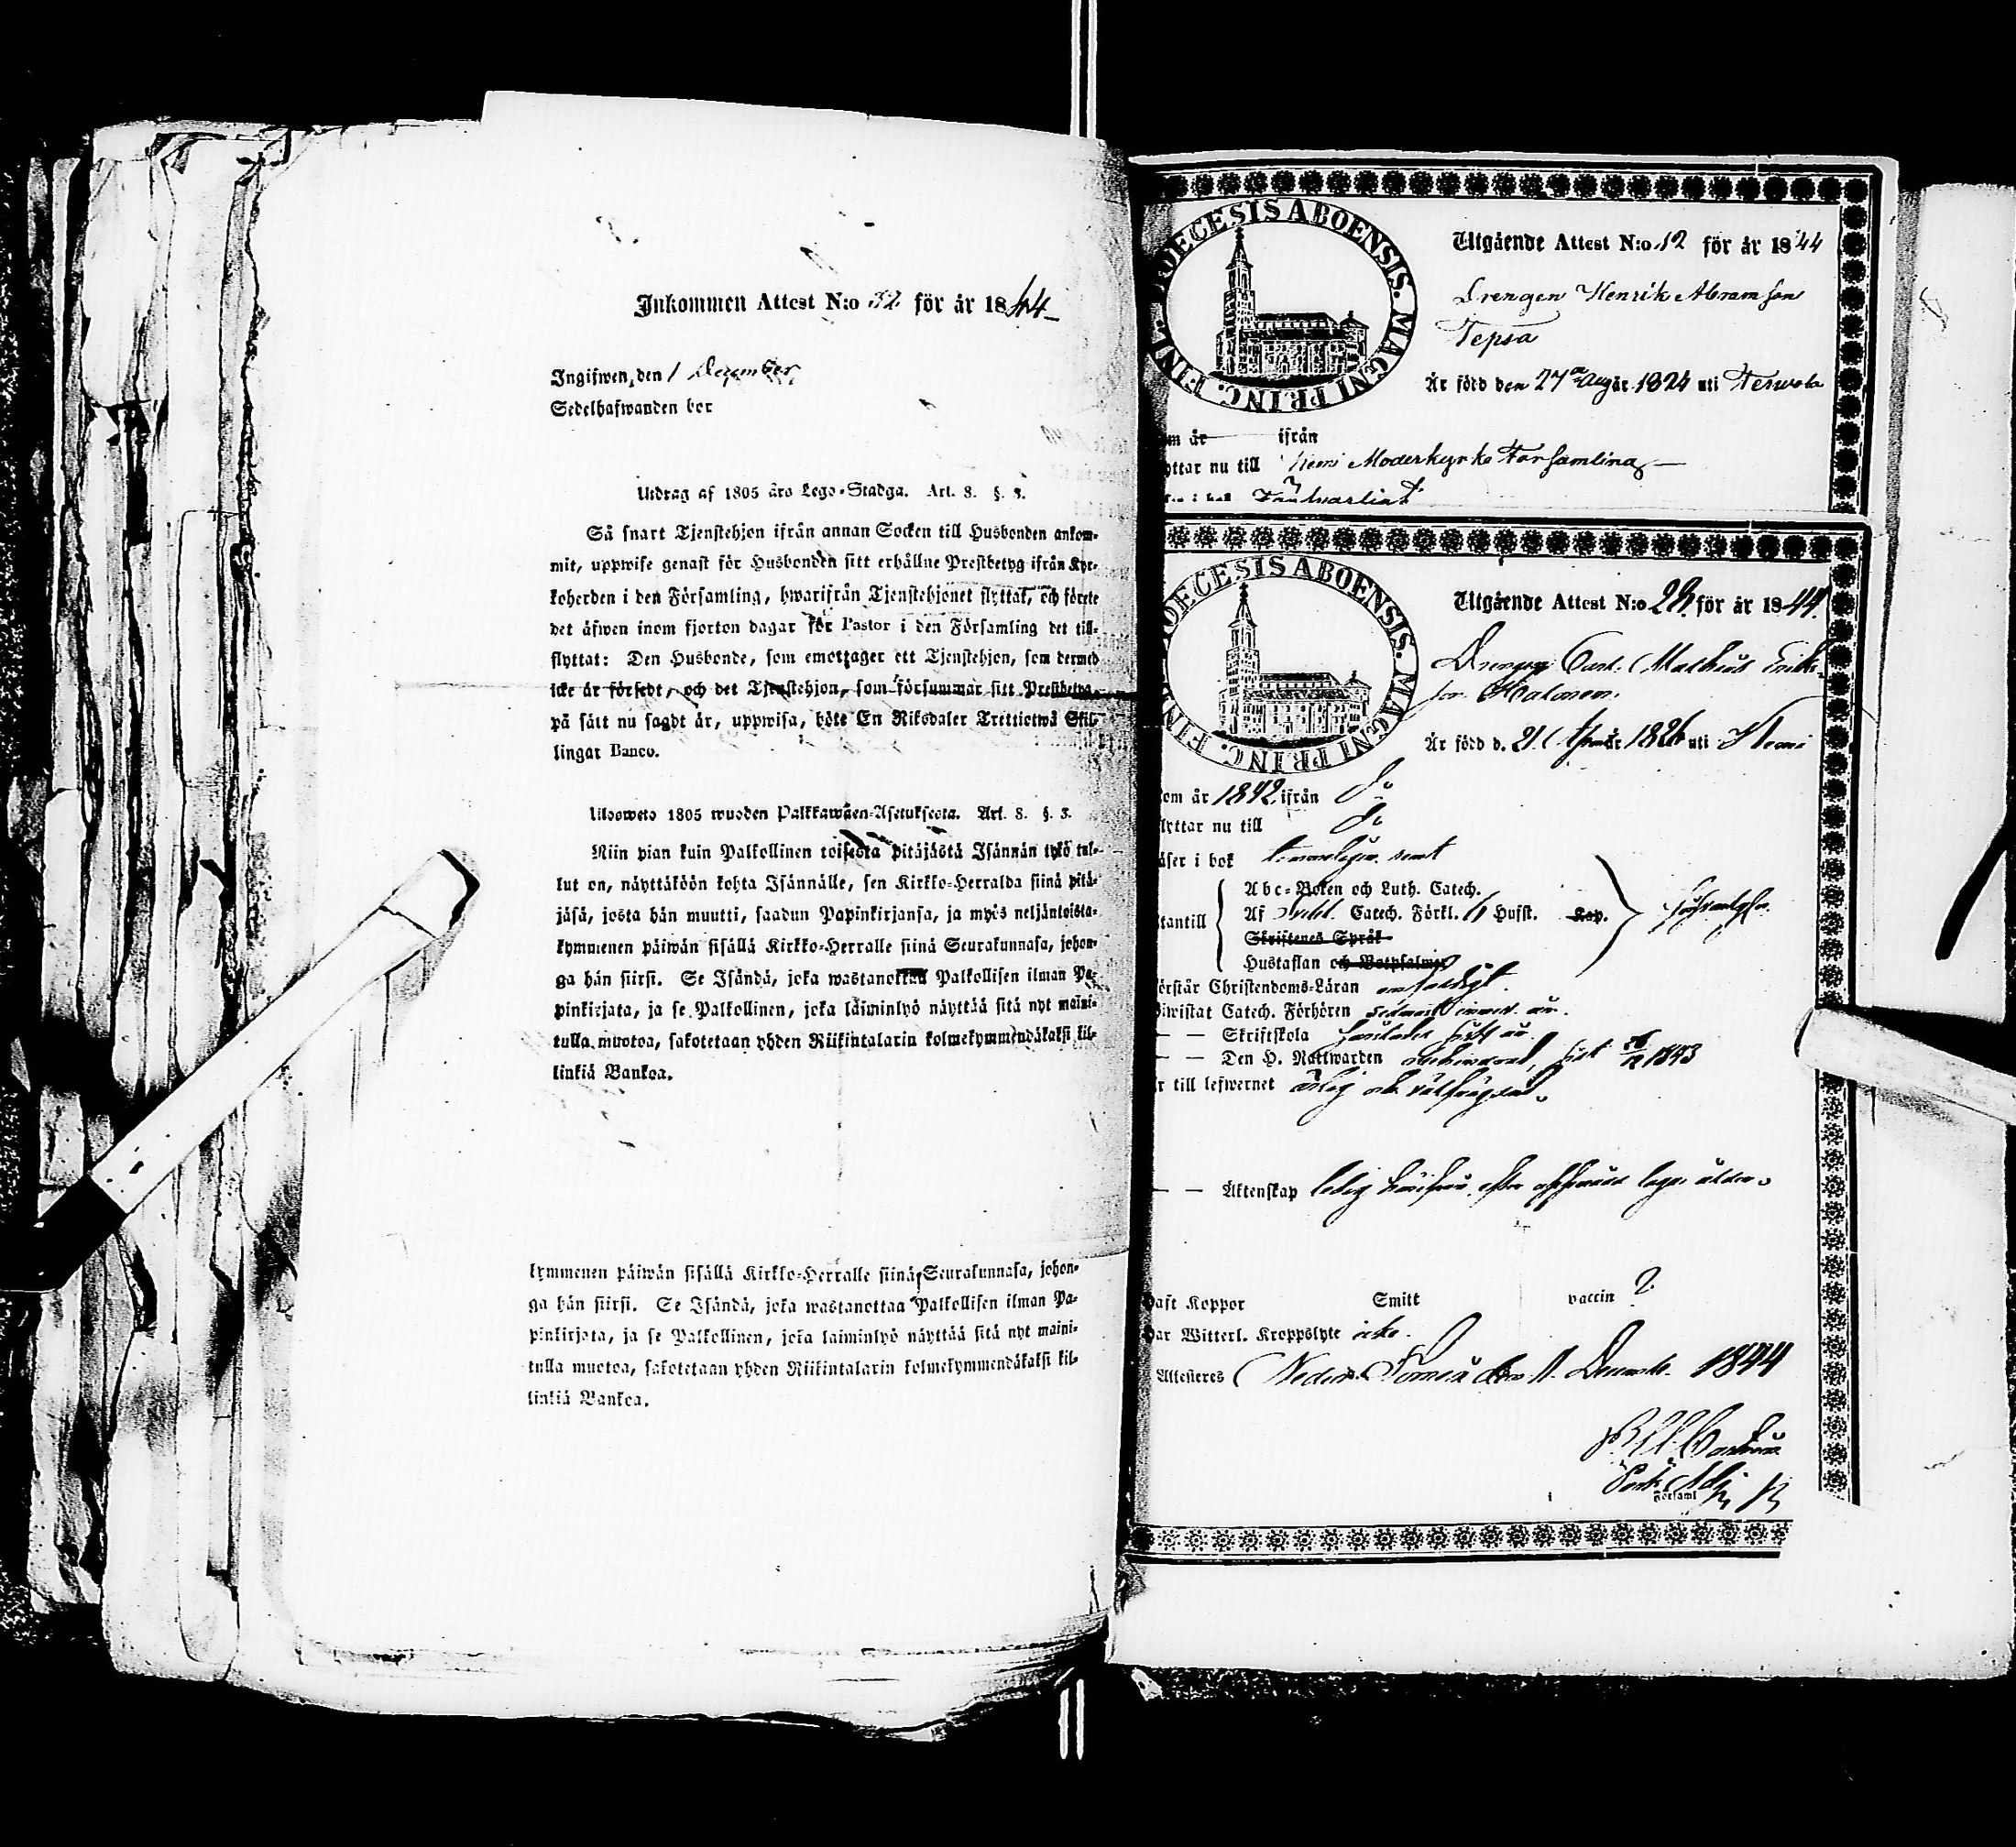 Inkommen Attest N:o 32 för år 1844
Ingifwen, den 1 Dezember
Sedelhafwanden bor
Utdrag af 1805 års Lego-Stadga. Art. 8. §. 3.
Så snart Tjenstehjon ifrån annan Socken till Husbonden ankom-
mit, uppwise genast för Husbonden sitt erhållne Prestbetyg ifrån Kyr-
koherden i den Församling, hwarifrån Tjenstehjonet flyttat, och förete
det äfwen inom fjorton dagar för Pastor i den Församling det till-
flyttat: Den Husbonde, som emottager ett Tjenstehjon, som dermed
icke är försedt, och det Tjenstehjon, som försummar sitt Prestbetyg,
på sätt nu sagdt är, uppwisa, böte En Riksdaler Trettiotwå Skil-
lingar Banco.
Ulosweto 1805 wuoden Palkkawäen-Asetuksesta. Art. 8. §. 3.
Niin pian kuin Palkollinen toisesta pitäjästä Isännän tykö tul-
lut on, näyttäköön kohta Isännälle, sen Kirkko-Herralda siinä pitä-
jäsä, josta hän muutti, saadun Papinkirjansa, ja myös neljäntoista-
kymmenen päiwän sisällä Kirkko-Herralle siinä Seurakunnasa, johon-
ga hän siirsi. Se Isändä, joka wastanottaa Palkollisen ilman Pa-
pinkirjata, ja se Palkollinen, joka laiminlyö näyttää sitä nyt maini-
tulla muotoa, sakotetaan yhden Riikintalarin kolmekymmendäkaksi kil-
linkiä Bankoa.
kymmenen päiwän sisällä Kirkko-Herralle siinä Seurakunnasa, johon-
ga hän siirsi. Se Isändä, joka wastanottaa Palkollisen ilman Pa-
pinkirjata, ja se Palkollinen, joka laiminlyö näyttää sitä nyt maini-
tulla muotoa, sakotetaan yhden Riikintalarin kolmekymmendäkaksi kil-
linkiä Bankoa.
OECESIS ABOENSIS. MAGNI PRINC. FINL.
Utgående Attest N:o 12 för år 1844
Drengen Henrik Abramson
Tepsa
Är född den 27 Aug år 1824 uti Terwola
m år ifrån
yttar nu till Kemi Moderkyrko Församling
OECESIS ABOENSIS. MAGNI PRINC. FIN
Utgående Attest N:o 28. för år 1844.
Drengen Carl Mathias Eriks-
son
Är född d. 21 år 1826 uti Kemi
om år 1842 ifrån Do
lyttar nu till Do
äser i bok samt
Abc-Boken och Luth. Catech.
tantill Af Catech. Förkl. Husst. Kap.
Skriftenes Språk
Hustaflan och Botpsalmer
örstår Christendoms-Läran enfaldigt
iwistat Catech. Förhören
— — Skriftskola
— — Den H. Nattwarden sist 26/12 1843
r till lefwernet ärlig och välfrägdad.
— — Äktenskap ledig
aft Koppor Smitt vaccin ?
ar Witterl. Kroppslyte icke.
Attesteres Neder Torneå den 11. December 1844
Församl